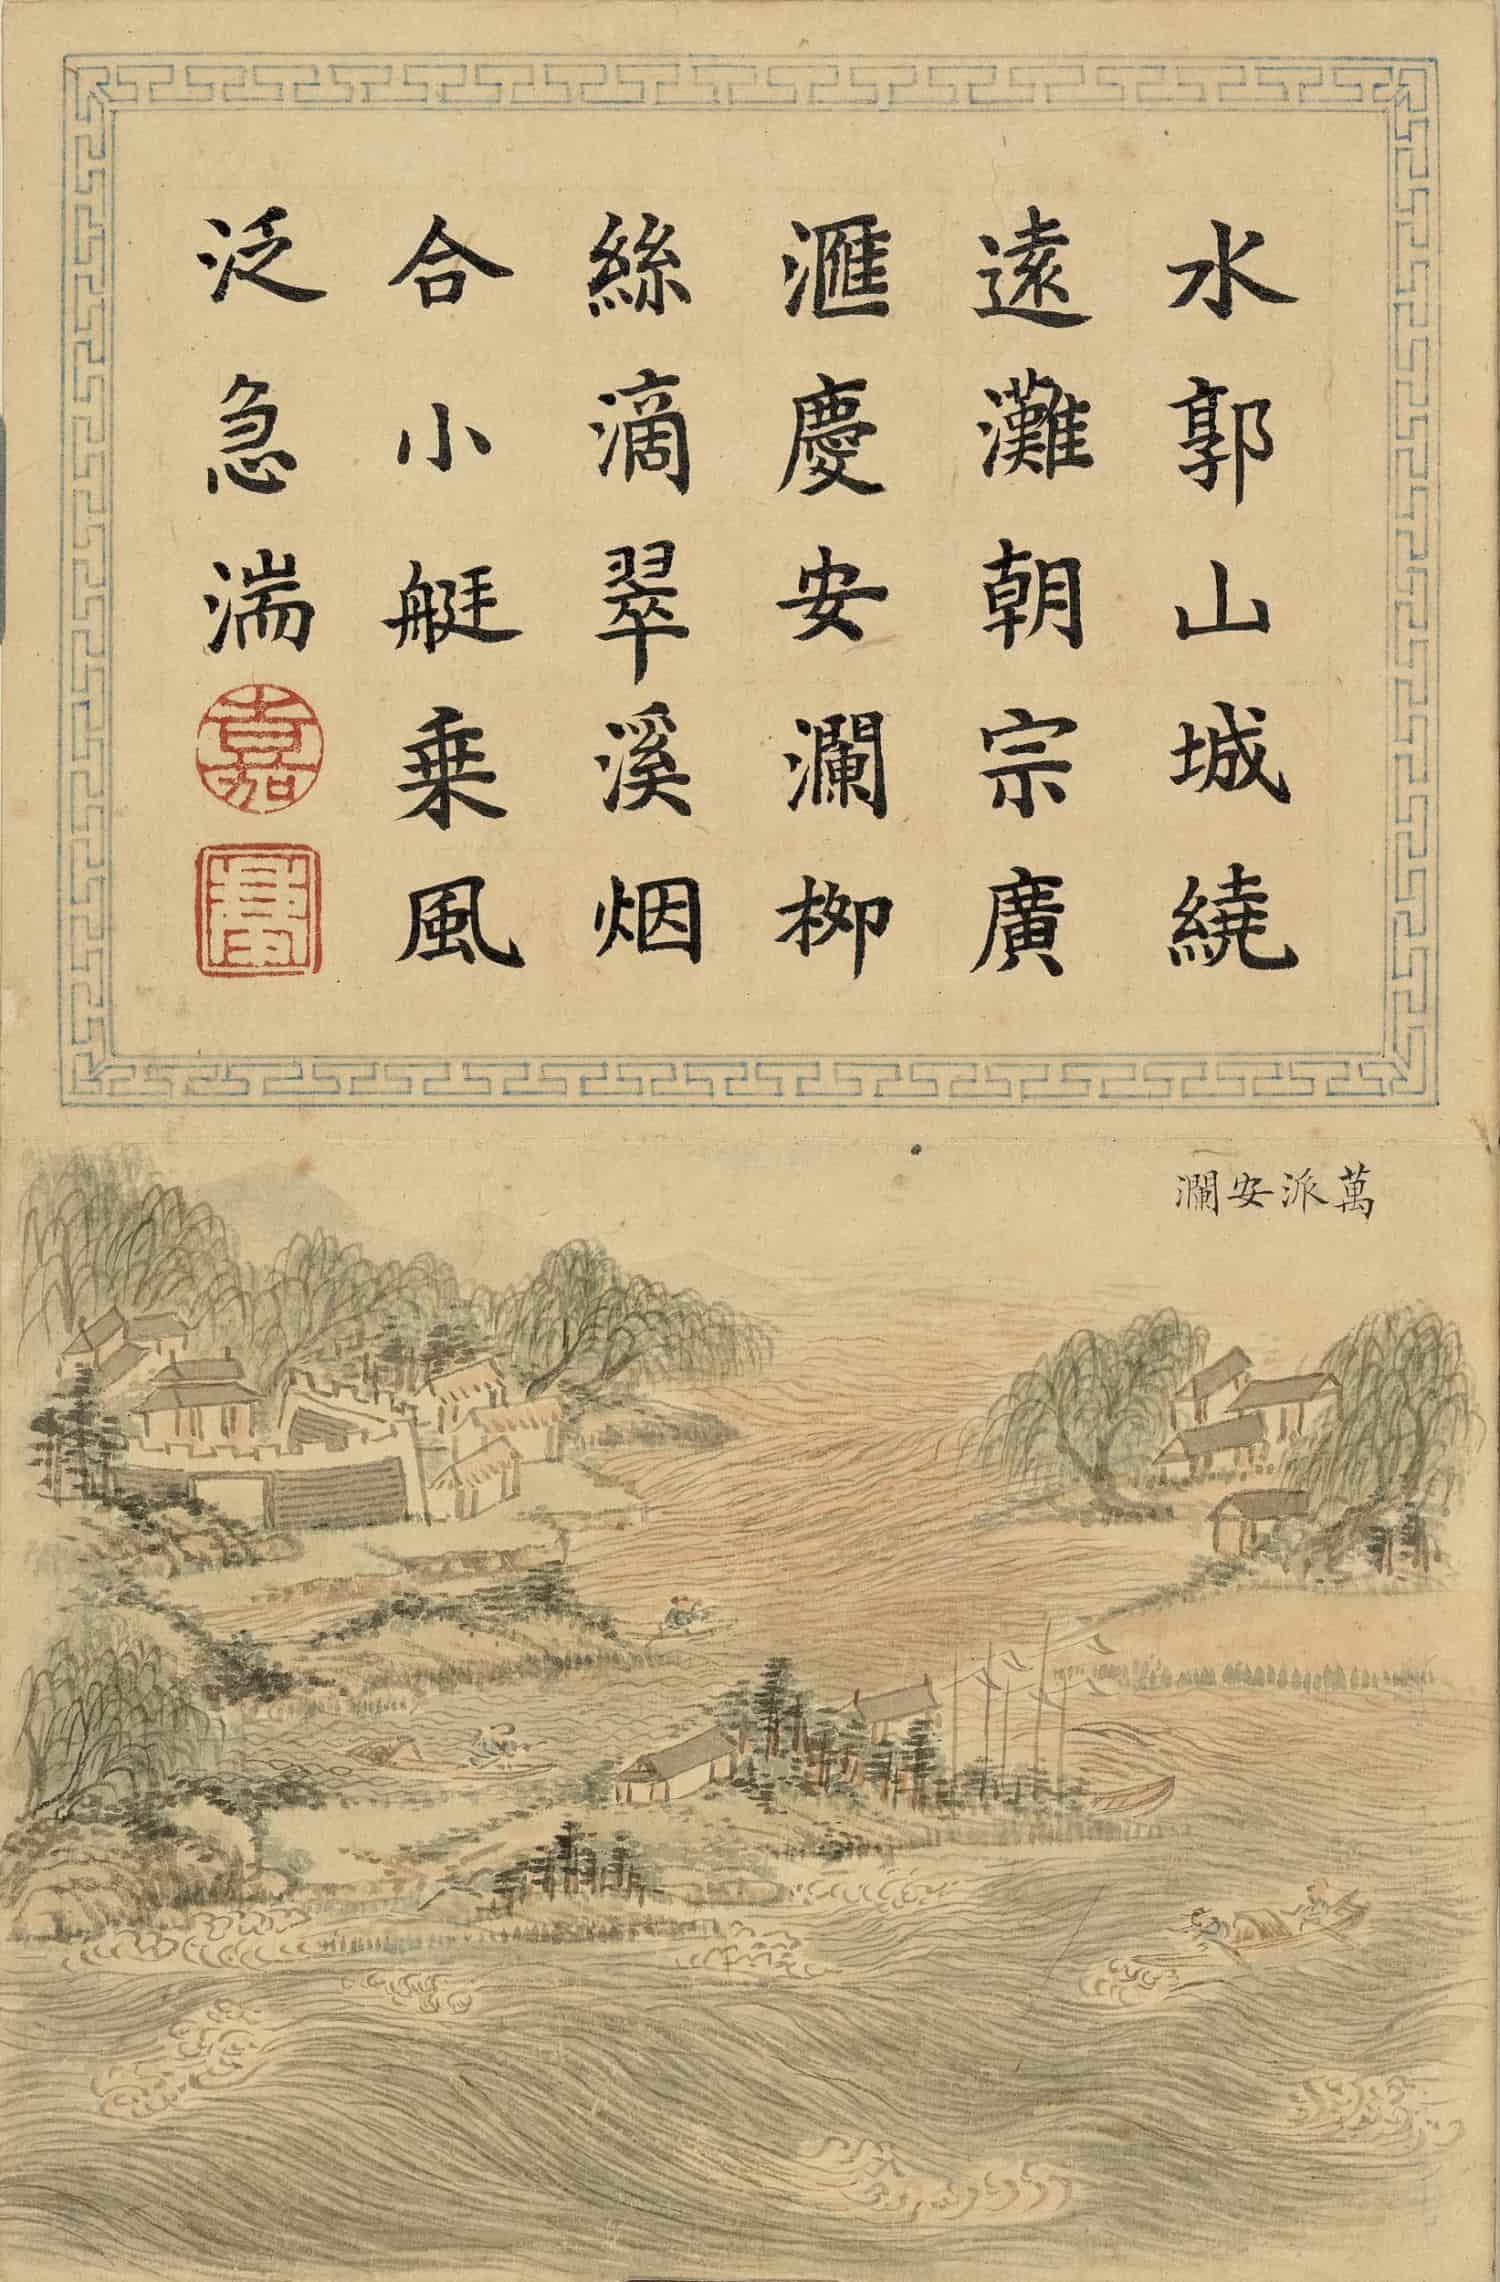 水郭山城繞
遠灘朝宗廣
滙慶安瀾柳
絲滴翠溪烟
合小艇乗風
泛急湍
嘉
萬派安瀾